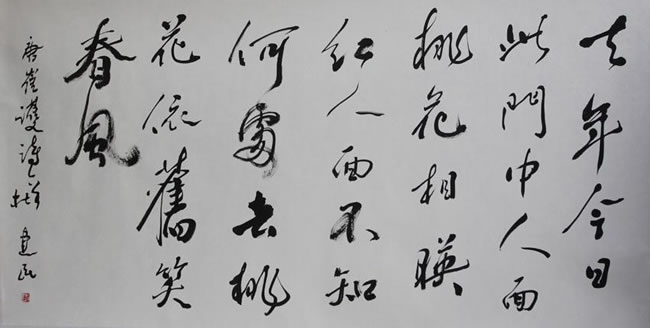 去年今日
此門中人面
桃花相暎
红人面不知
何處去桃
花依舊笑
春風
唐崔護詩